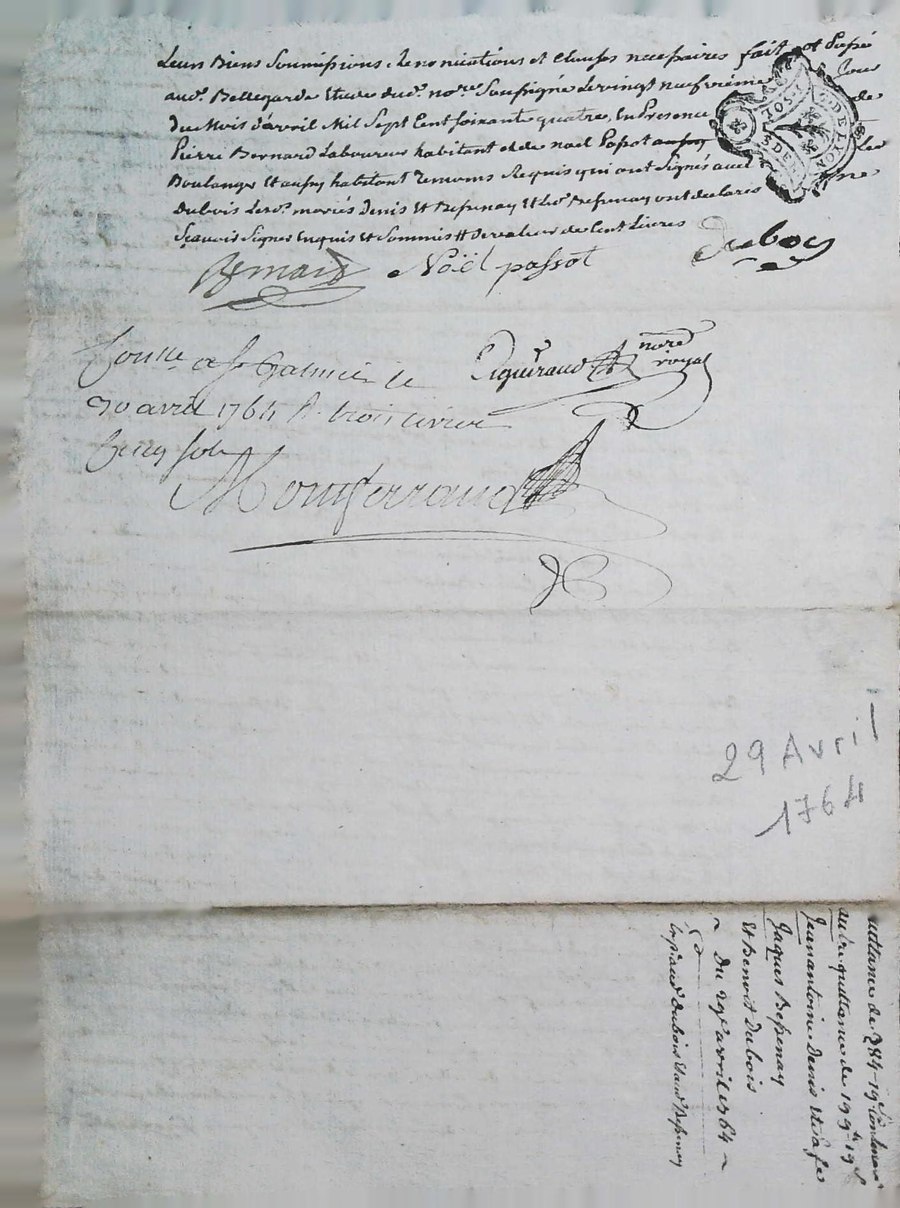 Leurs Biens Soumissions Renonciations et Clauses necessaires fait et Passé
aud. Bellegarde Etude dud. no.re Soussigné Le vingt neufvieme Jour
du Mois d'avril Mil Sept Cent soixante quatre, En Presence de
Pierre Bernard Laboureur habitant et de noel Passot aussy
Boulanger Et aussy habitant Temoins Requis qui ont Signés avec
Dubois Les d. mariés Denis Et Bessenay Et led. Bessenay ont declarés
Sçavoir Signer Enquis Et Sommis de valeur de Cent Livres
Bernard Noël passot Duboy
Piqueraud nore royal
Conlle a st Galmier le
30 avril 1764 R. trois livres
Cinq sols
Montferrand
29 Avril
1764
uittance de 284 19s
autre quittance de 199 19s
Jean antoine Denis Et sa fe
Jaques Bessenay
Et Benoit Dubois
Du 29e avril 1764
Dubois Et aud Bessenay